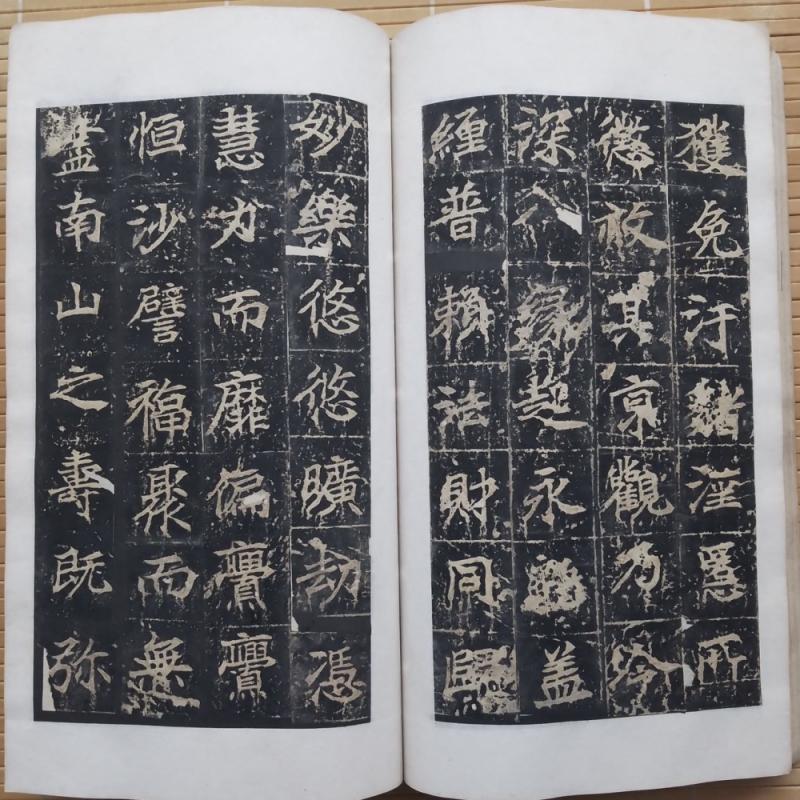 獲免汙淫所
其京觀乃
深入緣永蓋
纏普賴法財同歸
妙樂悠悠曠劫憑
慧力而靡亹亹
恒沙譬福聚而無
盡南山之壽既弥